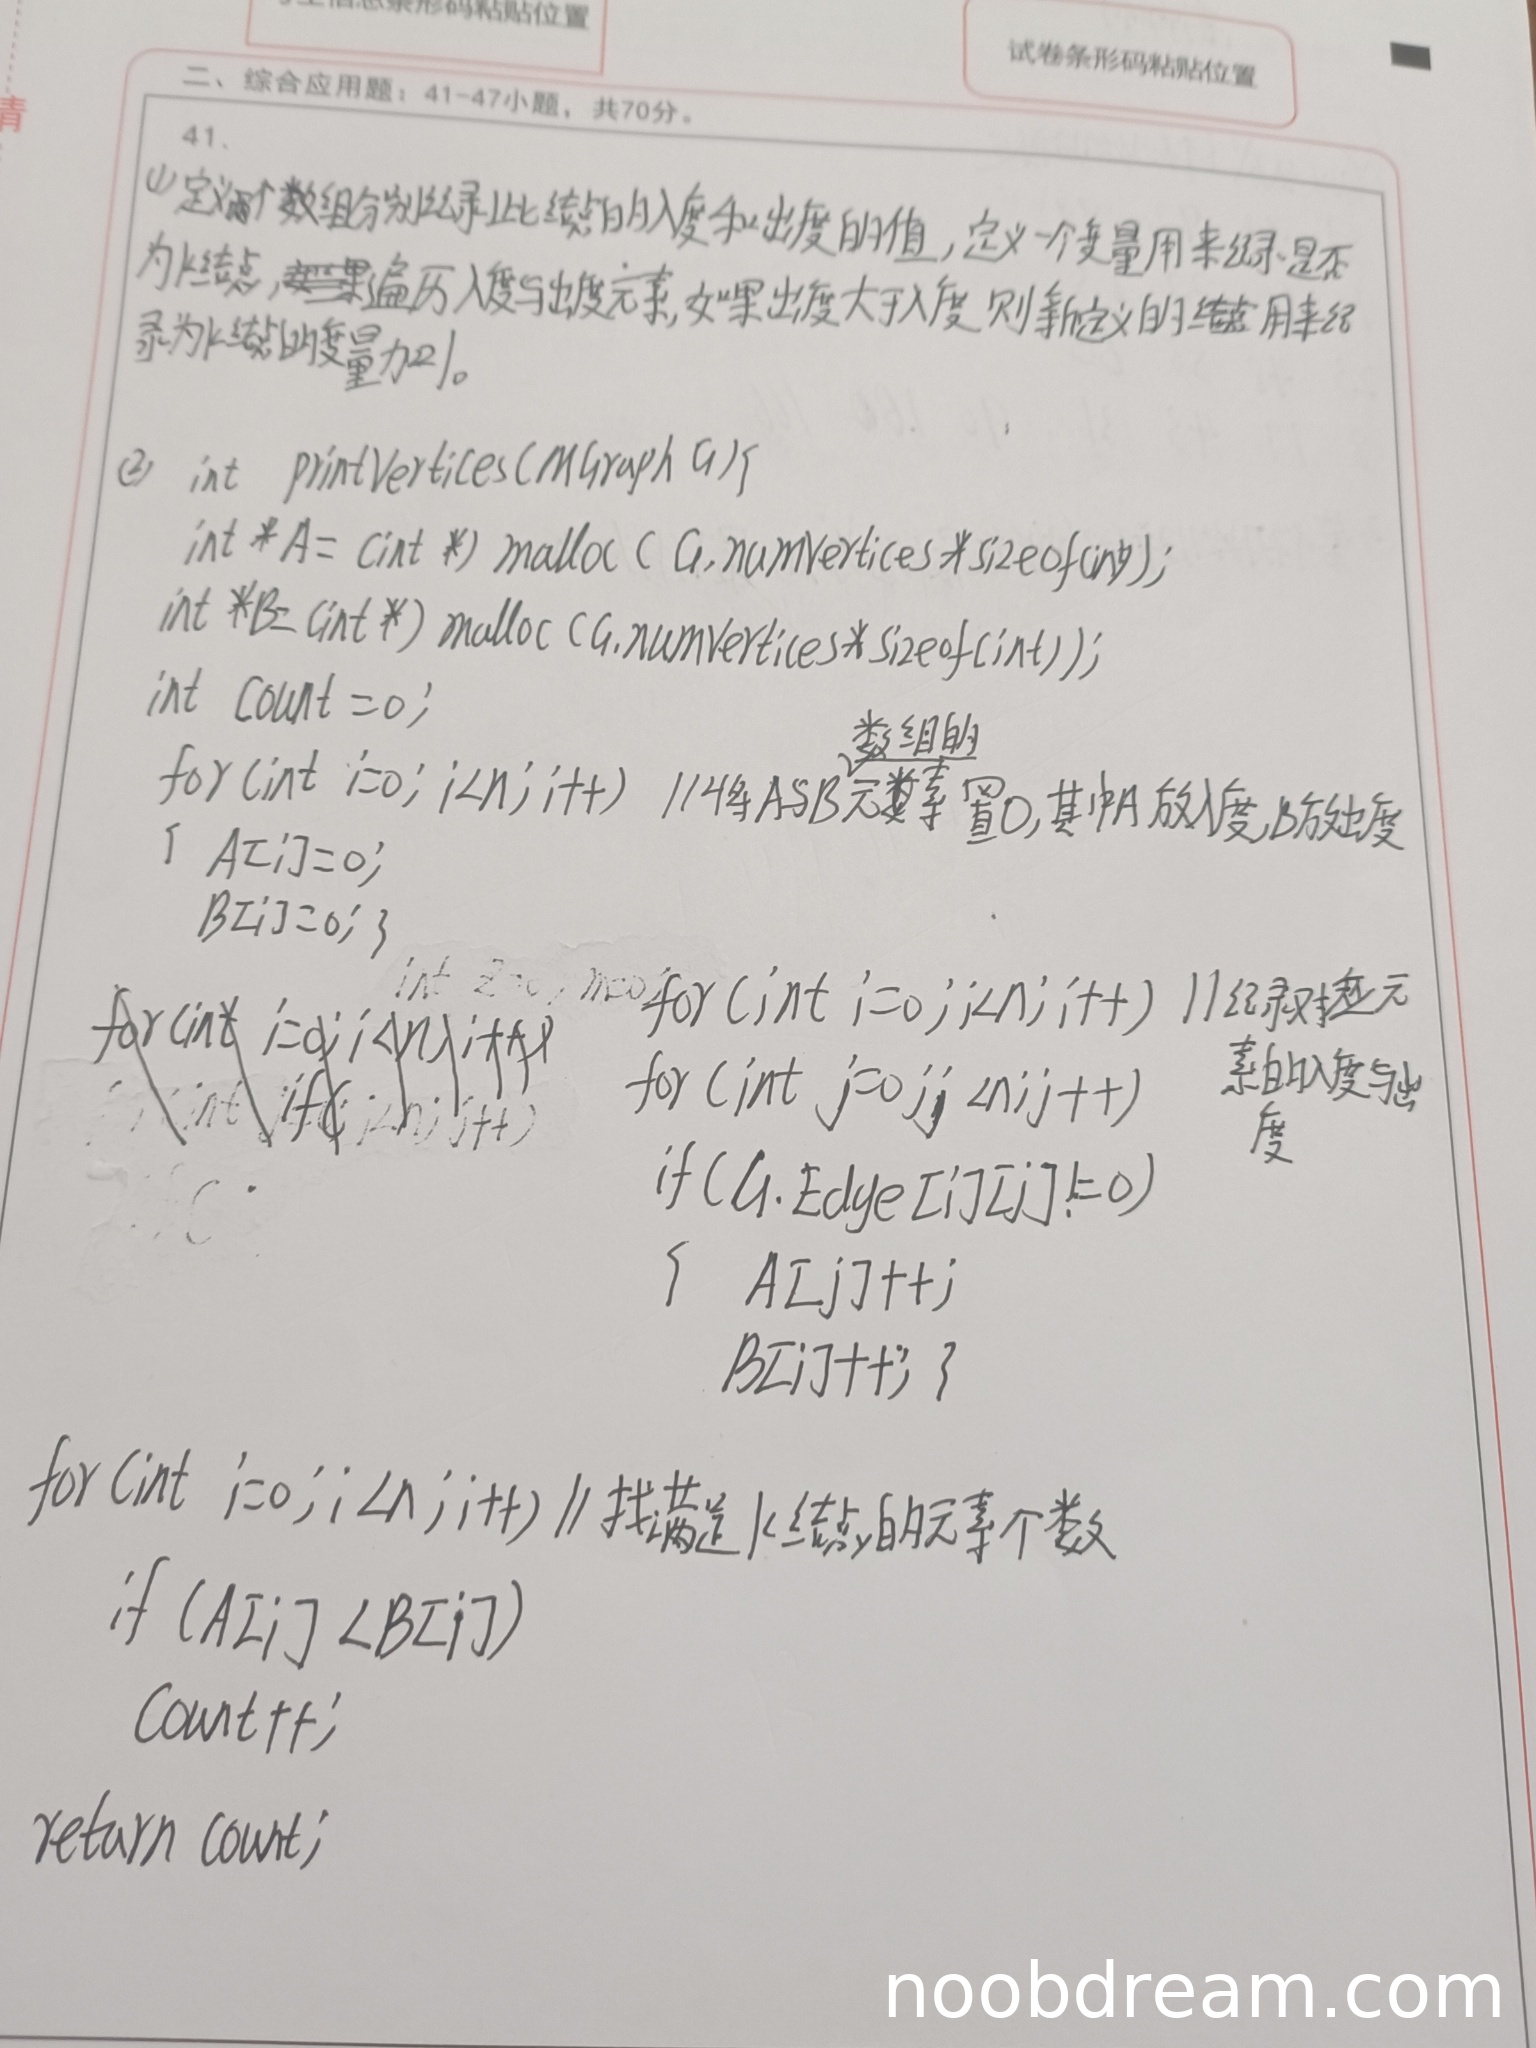 考生信息条形码粘贴位置
试卷条形码粘贴位置
青
二、综合应用题：41-47小题，共70分。
41.
(1) 定义两个数组分别纪录此结点的入度和出度的值，定义一个变量用来纪录是否
为K结点，遍历入度与出度元素，如果出度大于入度则新定义的用来纪
录为K结点的变量加1。
(2) int printVertices(MGraph G){
int *A= (int *) malloc ( G.numVertices*sizeof(int));
int *B= (int *) malloc (G.numVertices*sizeof(int));
int count =0;
数组的
for (int i=0; i<n; i++) //将A与B元素置0,其中A放入度,B放出度
{ A[i]=0;
B[i]=0; }
for (int i=0; i<n; i++) //纪录对应元
for (int j=0;j <n;j++) 素的入度与出
度
if (G.Edge[i][j]!=0)
{ A[j]++;
B[i]++; }
for (int i=0; i<n; i++) // 找满足K结点的元素个数
if (A[i] <B[i])
Count++;
return count;
noobdream.com